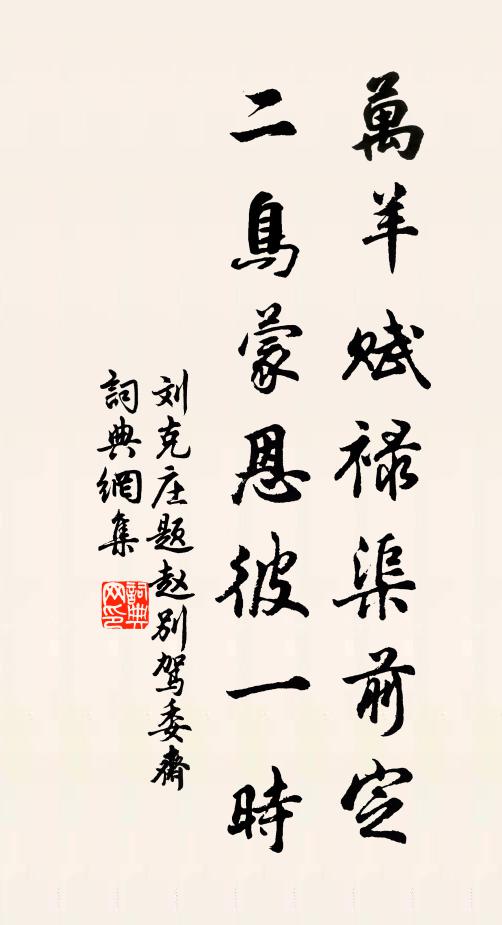 萬羊赋禄渠前定
二鳥蒙恩彼一時
刘克庄题赵别駕委齋
詞典網集
詞典网印